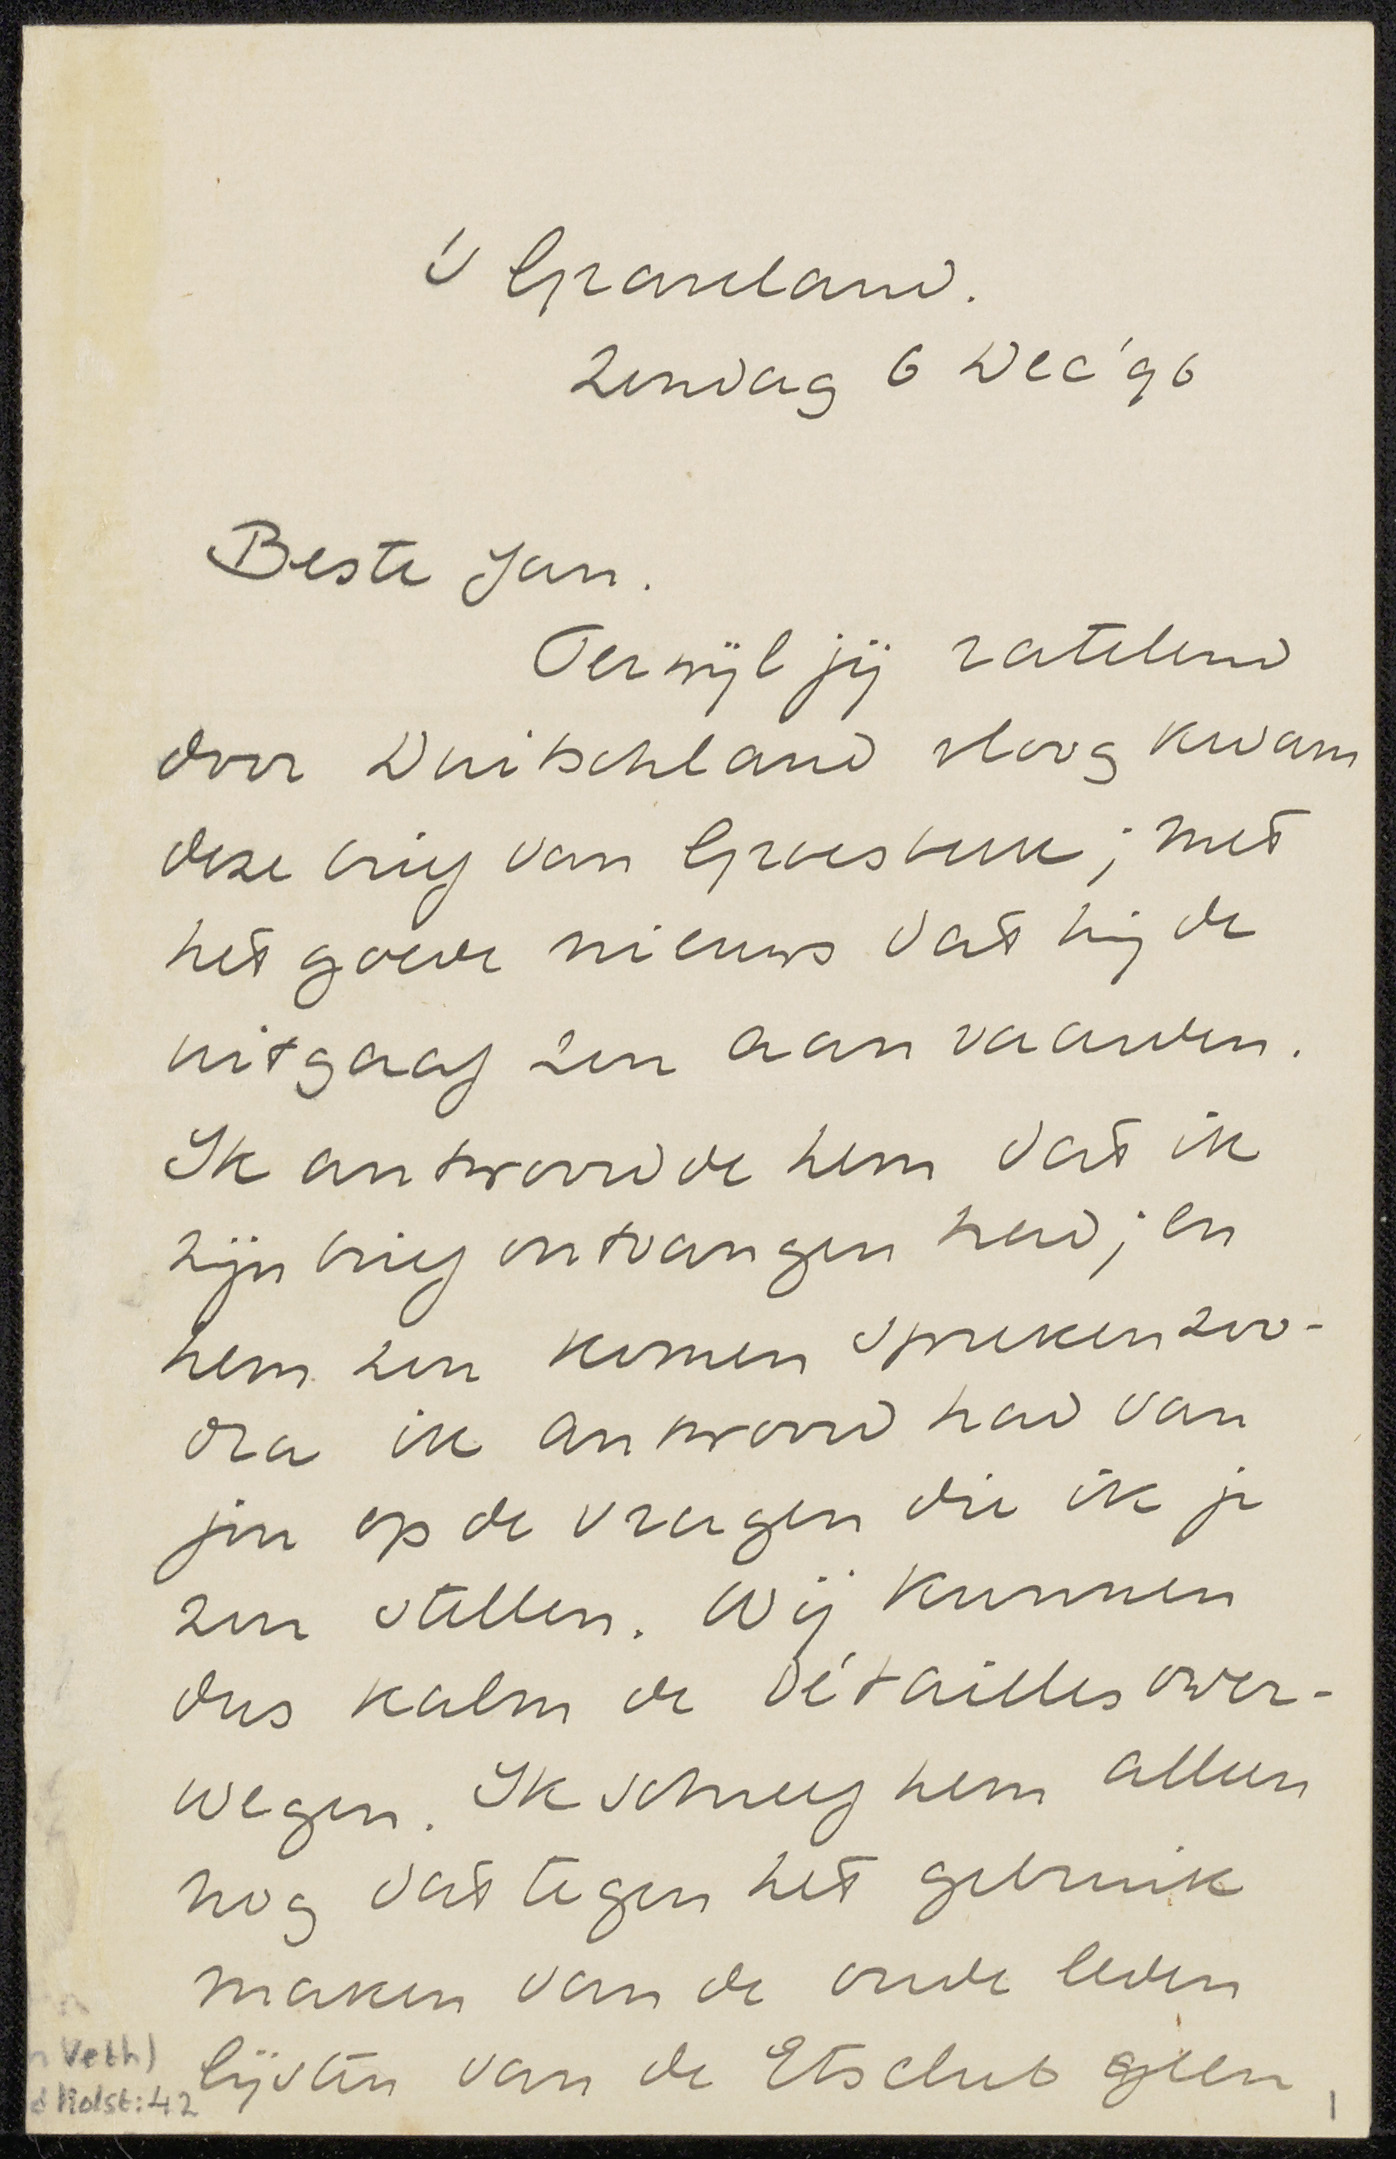 's Graveland.
Zondag 6 Dec '96
Beste Jan.
Terwijl jij ratelend
door Duitschland vloog kwam
deze brief van Groesbeek; met
het goede nieuws dat hij de
uitgaaf zou aanvaarden.
Ik antwoordde hem dat ik
zijn brief ontvangen had; en
hem zou komen spreken zoo-
dra ik antwoord had van
jou op de vragen die ik je
zou stellen. Wij kunnen
dus kalm de détailles over-
wegen. Ik schreef hem alleen
nog dat tegen het gebruik
maken van de oude leden
lijsten van de Etsclub geen
n Veth)
d Holst:42
1